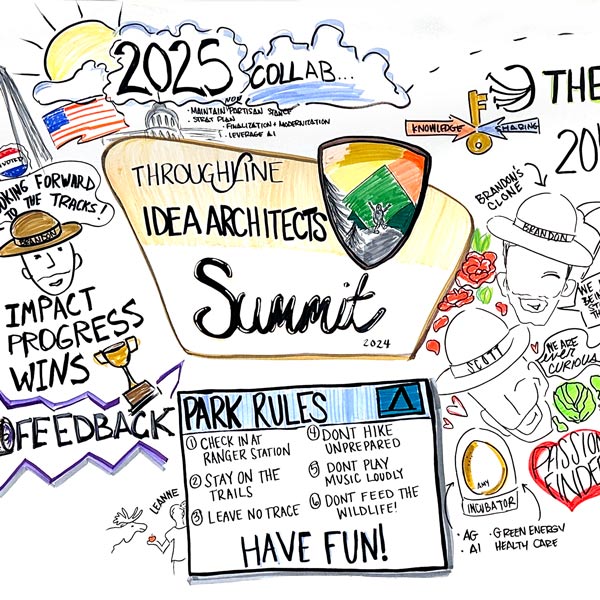 2025
COLLAB...
· MAINTAIN NON PARTISAN STANCE
· STRAT PLAN
· FINALIZATION + MODERNITATION
· LEVERAGE AI
VOTED
OKING FORWARD
TO THE TRACKS!
BRANDON
IMPACT
PROGRESS
WINS
FEEDBACK
THROUGHLINE
IDEA ARCHITECTS
Summit
2024
KNOWLEDGE
SHARING
THE
20
BRANDON'S
CLONE
BRANDON
WE
BEIN
SCOTT
WE ARE
ever
CURIOUS
PARK RULES
① CHECK IN AT
RANGER STATION
② STAY ON THE
TRAILS
③ LEAVE NO TRACE
④ DONT HIKE
UNPREPARED
⑤ DONT PLAY
MUSIC LOUDLY
⑥ DONT FEED THE
WILDLIFE!
HAVE FUN!
LEANNE
AMY
INCUBATOR
· AG
· AI
· GREEN ENERGY
HEALTY CARE
PASSION
FINDER